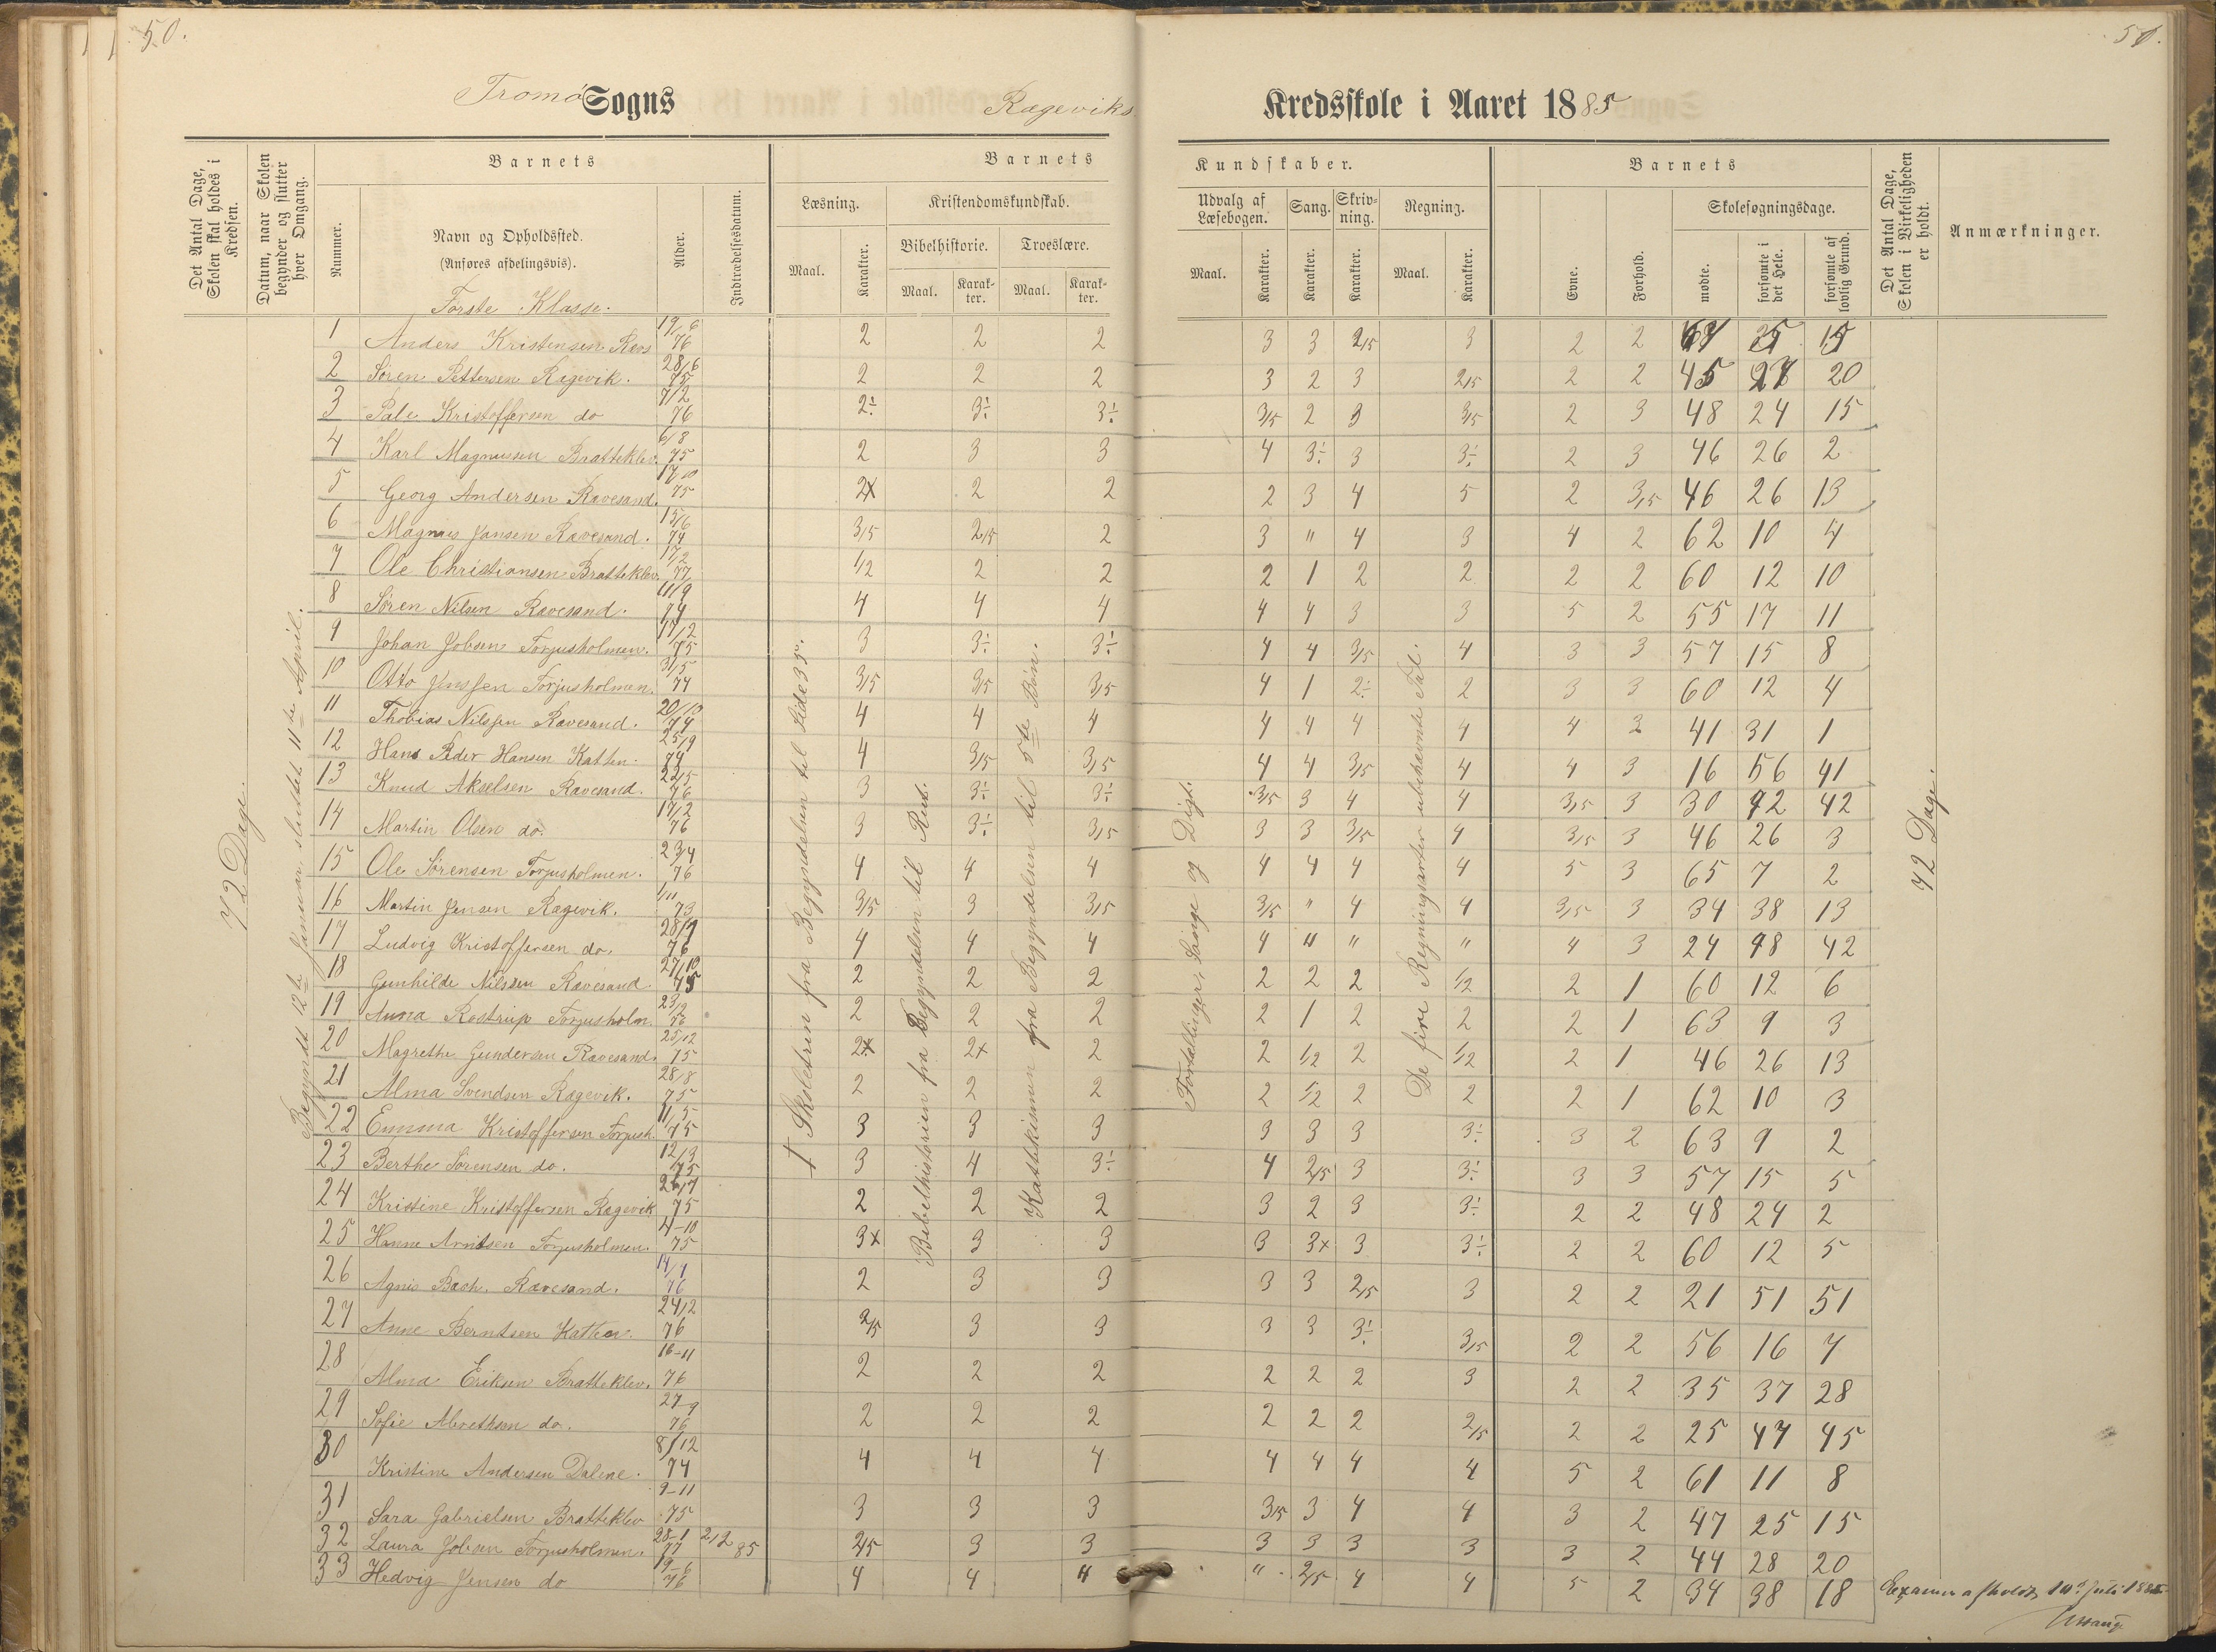 50.
51.
Tromø Sogns Rægeviks Kredsskole i Aaret 1885
Det Antal Dage, Skolen skal holdes i Kredsen.
Datum, naar Skolen begynder og slutter hver Omgang.
Barnets
Nummer.
Navn og Opholdssted.
(Anføres afdelingsvis).
Første Klasse.
Alder.
Indtrædelsesdatum.
Barnets Kundskaber.
Læsning.
Maal.
Karakter.
Kristendomskundskab.
Bibelhistorie.
Maal.
Karakter.
Troeslære.
Maal.
Karakter.
Udvalg af Læsebogen.
Maal.
Karakter.
Sang.
Karakter.
Skrivning.
Karakter.
Regning.
Maal.
Karakter.
Barnets
Evne.
Forhold.
Skolesøgningsdage.
mødte.
forsømte i det Hele.
forsømte af lovlig Grund.
Det Antal Dage, Skolen i Virkeligheden er holdt.
Anmærkninger.
72 Dage.
Begyndt 12te Januar, sluttet 11te April.
Skoletrin fra Begyndelsen til Side 35.
Bibelhistorien fra Begyndelsen til Rut.
Katekismen fra Begyndelsen til 5te Bøn.
Fortællinger, Sange og Digt.
De fire Regningsarter ubenævnte Tal.
72 Dage.
1 Anders Kristensen Ravs 19/6 76 2 2 2 3 3 2,5 3 2 2 15
2 Søren Pettersen Rægevik. 28/6 75 2 2 2 3 2 3 2,5 2 2 45 27 20
3 Pale Kristoffersen do 7/2 76 2÷ 3÷ 3÷ 3,5 2 3 3,5 2 3 48 24 15
4 Karl Magnussen Bratteklev. 6/8 75 2 3 3 4 3÷ 3 3÷ 2 3 46 26 2
5 Georg Andersen Ravesand. 17/10 75 2x 2 2 2 3 4 5 2 3,5 46 26 13
6 Magnus Jansen Ravesand. 15/6 74 3,5 2,5 2 3 " 4 3 4 2 62 10 4
7 Ole Christiansen Bratteklev. 17/2 77 1/2 2 2 2 1 2 2 2 2 60 12 10
8 Søren Nilsen Ravesand. 11/9 74 4 4 4 4 4 3 3 5 2 55 17 11
9 Johan Jobsen Torjusholmen. 17/12 75 3 3÷ 3÷ 4 4 3,5 4 3 3 57 15 8
10 Otto Jenssen Torjusholmen. 31/5 74 3,5 3,5 3,5 4 1 2÷ 2 3 3 60 12 4
11 Thobias Nilssen Ravesand. 20/10 74 4 4 4 4 4 4 4 4 3 41 31 1
12 Hans Peder Hansen Katten. 25/9 74 4 3,5 3,5 4 4 3,5 4 4 3 16 56 41
13 Knud Akselsen Ravesand. 22/5 76 3 3÷ 3÷ 3,5 3 4 4 3,5 3 30 42 42
14 Martin Olsen do. 17/2 76 3 3÷ 3,5 3 3 3,5 4 3,5 3 46 26 3
15 Ole Sørensen Torjusholmen. 23/4 76 4 4 4 4 4 4 4 5 3 65 7 2
16 Martin Jensen Rægevik. 1/11 73 3,5 3 3,5 3,5 " 4 4 3,5 3 34 38 13
17 Ludvig Kristoffersen do. 76 4 4 4 4 " " " 4 3 24 48 42
18 Gunhilde Nilssen Ravesand 27/10 75 2 2 2 2 2 2 1/2 2 1 60 12 6
19 Anna Rostrup Torjusholm. 76 2 2 2 2 1 2 2 2 1 63 9 3
20 Magrethe Gundersen Ravesand. 25/12 75 2x 2x 2 2 1/2 2 1/2 2 1 46 26 13
21 Alma Svendsen Rægevik. 28/8 75 2 2 2 2 1/2 2 2 2 1 62 10 3
22 Emma Kristoffersen Torjush. 11/5 75 3 3 3 3 3 3 3÷ 3 2 63 9 2
23 Berthe Sørensen do. 12/3 75 3 4 3÷ 4 2,5 3 3÷ 3 3 57 15 5
24 Kristine Kristoffersen Rægevik 75 2 2 2 3 2 3 3÷ 2 2 48 24 2
25 Hanne Arntsen Torjusholmen. 4-10 75 3x 3 3 3 3x 3 3÷ 2 2 60 12 5
26 Agnis Bach. Ravesand. 76 2 3 3 3 3 2,5 3 2 2 21 51 51
27 Anne Berntsen Katten. 24/2 76 2,5 3 3 3 3 3÷ 3,5 2 2 56 16 7
28 Alma Eriksen Bratteklev. 16-11 76 2 2 2 2 2 2 3 2 2 35 37 28
29 Sofie Albrethsen do. 27-9 76 2 2 2 2 2 2 2,5 2 2 25 47 45
30 Kristine Andersen Dalene. 8/12 74 4 4 4 4 4 4 4 5 2 61 11 8
31 Sara Gabrielsen Bratteklev 9-11 75 3 3 3 3,5 3 4 4 3 2 47 25 15
32 Laura Jobsen Torjusholmen. 28-1 77 2/2 85 2,5 3 3 3 3 3 3 3 2 44 28 20
33 Hedvig Jensen do 19-6 76 4 4 4 " 2,5 4 4 5 2 34 38 18
Examen afholdt 10de Juli 1885